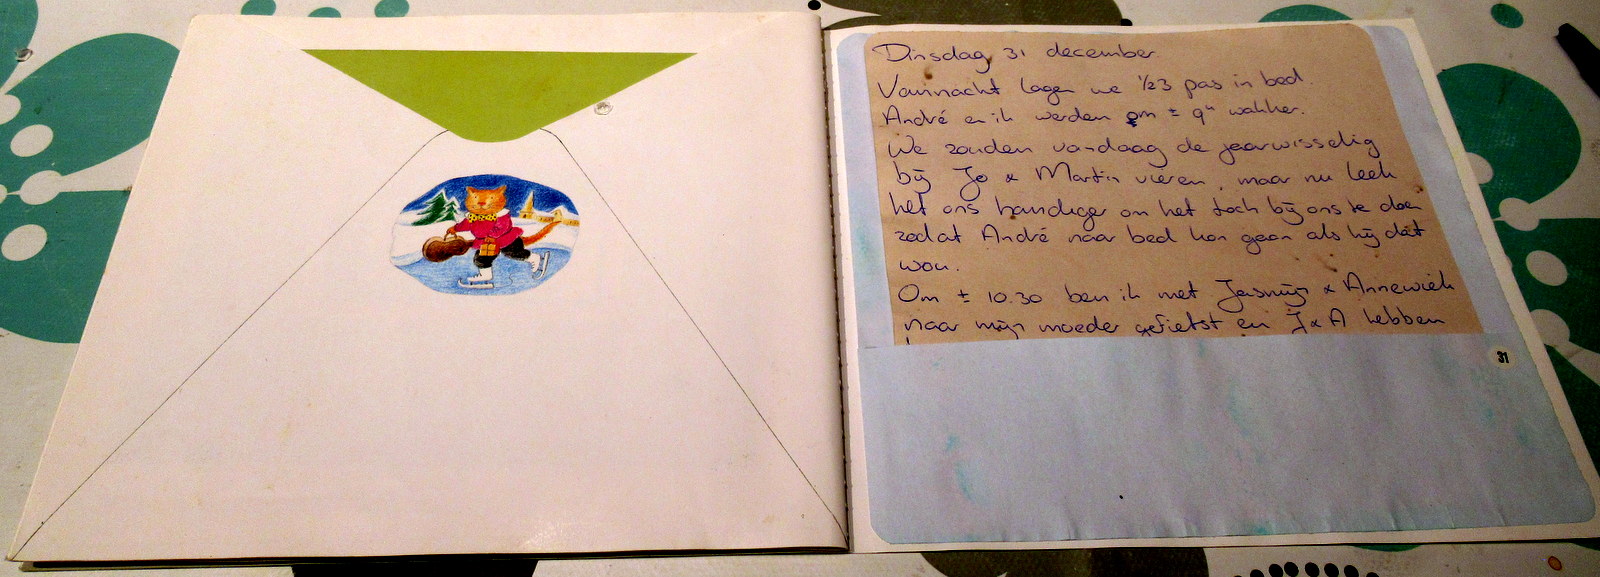 Dinsdag 31 december
Vannacht lagen we 1/23 pas in bed.
André en ik werden om ± 9u wakker.
We zouden vandaag de jaarwisselig
bij Jo & Martin vieren, maar nu leek
het ons handiger om het toch bij ons te doen
zodat André naar bed kon gaan als hij dát
wou.
Om ± 10.30 ben ik met Jasmijn & Annewiek
naar mijn moeder gefietst en J&A hebben
31